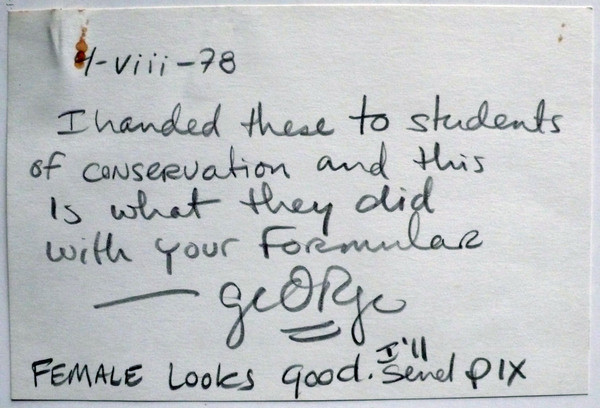 4-viii-78
I handed these to students
of conservation and this
Is what they did
with your Formular
— George
FEMALE Looks good. I'll Send pix